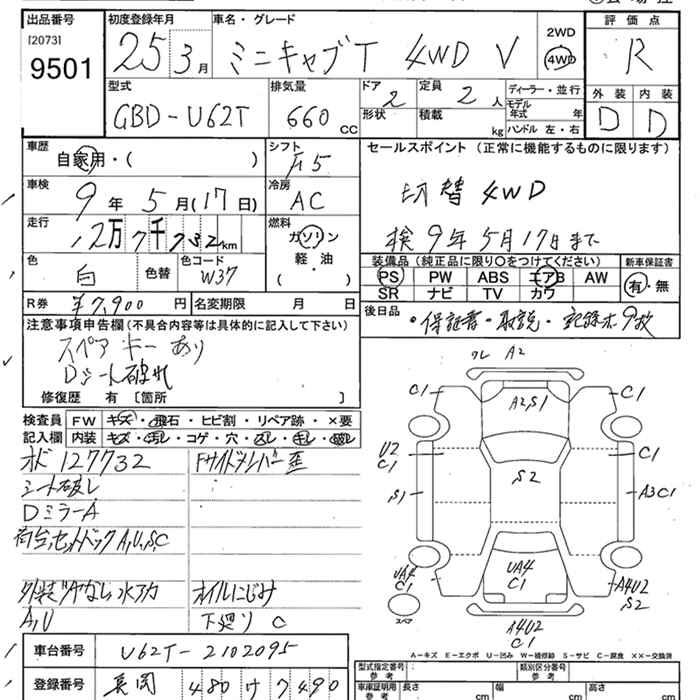 出品番号 [2073] 9501
初度登録年月 25年 3月
車名・グレード ミニキャブT 4WD V
2WD
4WD
評価点 R
型式 GBD-U62T
排気量 660 CC
ドア 2
形状
定員 2 人
積載 kg
ディーラー・並行
モデル年式 年
ハンドル 左・右
外装 内装
D D
車歴 自家用・( )
シフト F5
セールスポイント (正常に機能するものに限ります)
切替 4WD
検 9年5月17日まで
車検 9年 5月(17日)
冷房 AC
走行 12万7千732km
燃料 ガソリン
軽・油
( )
色 白 色替
色コード W37
装備品(純正品に限り○をつけてください)
PS PW ABS エアB AW
SR ナビ TV カワ
新車保証書
有・無
R券 ¥7,900円
名変期限 月 日
後日品 ・保証書・取説・記録ボ 9枚
注意事項申告欄(不具合内容等は具体的に記入して下さい)
スペアキーあり
Dシート破れ
修復歴 有 [箇所 ]
検査員記入欄
FW キズ・飛石・ヒビ割・リペア跡・×要
内装 キズ・汚レ・コゲ・穴・
オド 127732
シート破レ
DミラーA
荷台,セットバックA,U,S,C
外装ツヤなし 水アカ
A,U
Fサイドメンバー歪
オイルにじみ
下廻り C
車台番号 U62T-2102095
登録番号 長岡 480 け 7490
フレ A2
C1
A2,S1
C1
U2
C1
S2
C1
S1
A3C1
UA4
C1
UA4
C1
A4U2
S2
スペア
A4U2
C1
A-キズ E-エクボ U-凹み W-補修跡 S-サビ C-腐食 ××-交換済
型式指定番号 参考
類別区分番号 参考
車庫証明用 参考
長さ cm
幅 cm
高さ cm